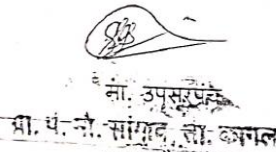 मा. उपसरपंच
ग्रा. पं. मौ. सांगाव ता. कागल